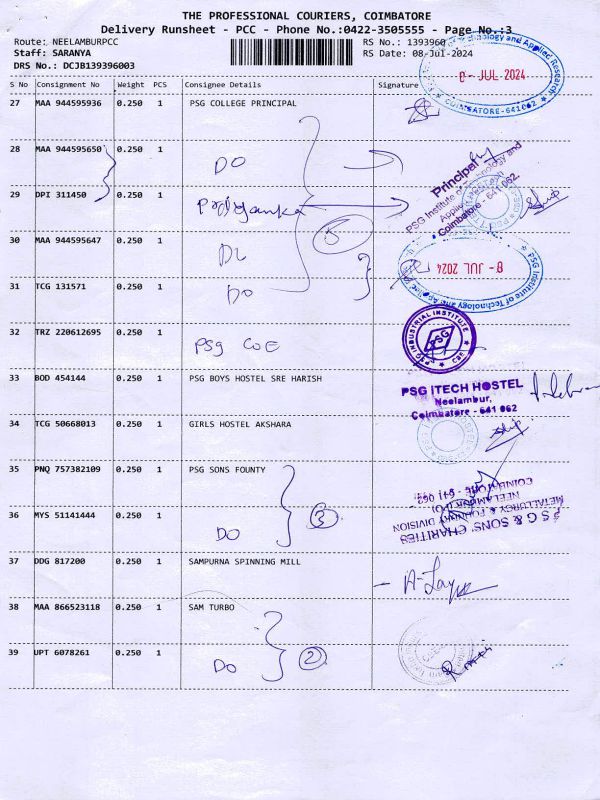 THE PROFESSIONAL COURIERS, COIMBATORE
Delivery Runsheet - PCC - Phone No.:0422-3505555 - Page No.:3
Route: NEELAMBURPCC RS No.: 1393960
Staff: SARANYA RS Date: 08-Jul-2024
DRS No.: DCJB139396003
S No Consignment No Weight PCS Consignee Details Signature
8- JUL 2024
COIMBATORE-641062
27 MAA 944595936 0.250 1 PSG COLLEGE PRINCIPAL
28 MAA 944595650 0.250 1 DO
Principal
PSG Institute of Technology and
Applied Research
Coimbatore - 641 062.
29 DPI 311450 0.250 1 Priyanka
5
30 MAA 944595647 0.250 1 DO
8- JUL 2024
PSG Institute of Technology and Applied
31 TCG 131571 0.250 1 DO
32 TRZ 220612695 0.250 1 PSG COE
PSG INDUSTRIAL INSTITUTE
PSG
CBE
33 BOD 454144 0.250 1 PSG BOYS HOSTEL SRE HARISH
PSG ITECH HOSTEL
Neelambur,
Coimbatore - 641 062
34 TCG 50668013 0.250 1 GIRLS HOSTEL AKSHARA
35 PNQ 757382109 0.250 1 PSG SONS FOUNTY
PSG & SONS' CHARITIES
METALLURGY & FOUNDRY DIVISION
NEELAMBUR (PO)
COIMBATORE - 641 062
36 MYS 51141444 0.250 1 DO
3
37 DDG 817200 0.250 1 SAMPURNA SPINNING MILL
38 MAA 866523118 0.250 1 SAM TURBO
39 UPT 6078261 0.250 1 DO
2